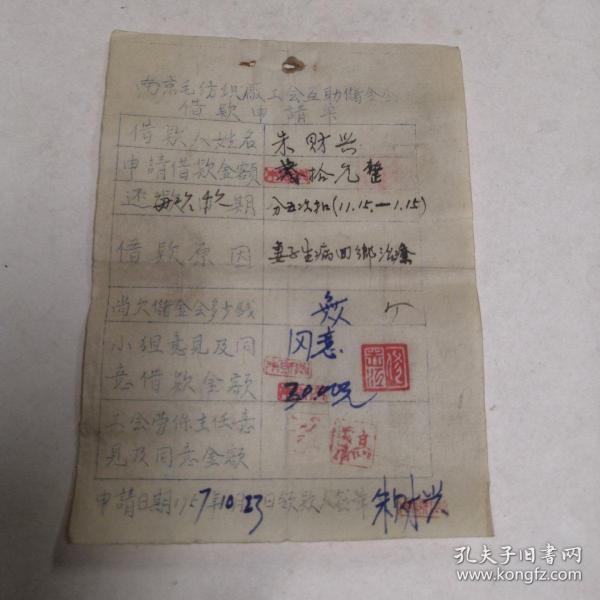 南京毛纺织厰工会互助储金会
借款申請單
借款人姓名 朱财兴
申請借款金額 拾元整
还 期 分五次扣(11.15.—1.15)
借款原因 妻子生病回鄉治療
尚欠儲金会多少錢 無
小组意见及同 同意
意借款金額 30.00元
工会劳保主任意
見及同意金額
申請日期1957年10月23日領款人签章 朱财兴
孔夫子旧书网
www.kongfz.com